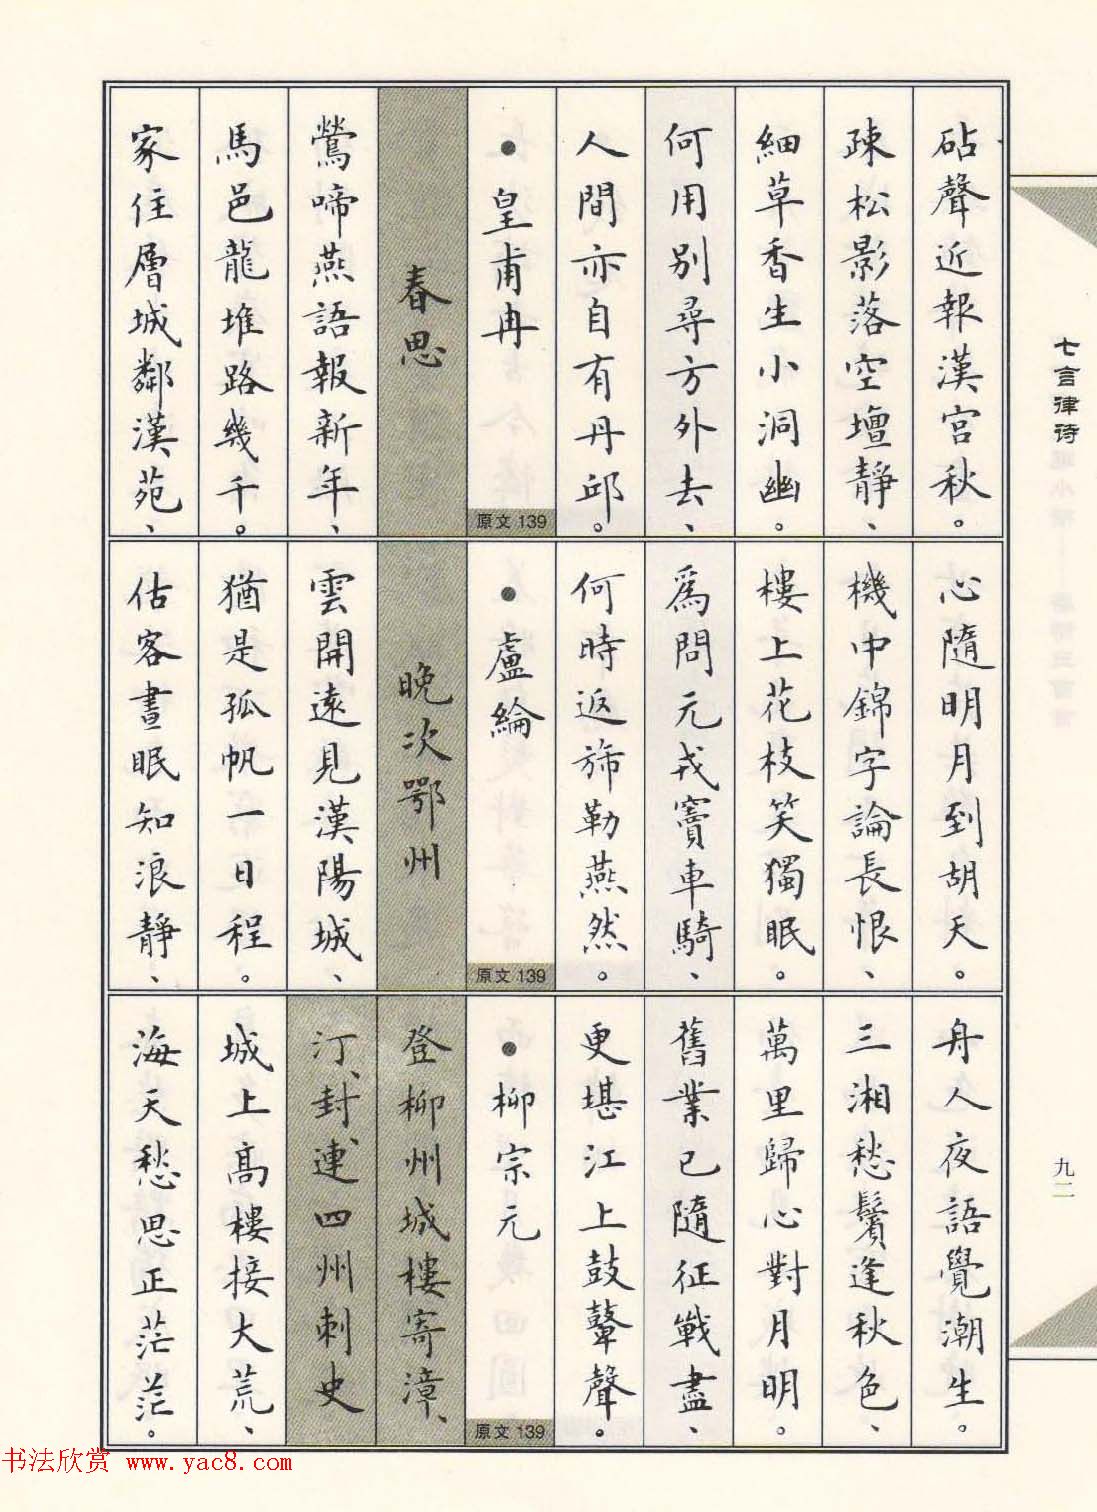 砧聲近報漢宮秋。
疎松影落空壇靜、
細草香生小洞幽。
何用別尋方外去、
人間亦自有丹邱。
●皇甫冉
原文139
春思
鶯啼燕語報新年、
馬邑龍堆路幾千。
家住層城鄰漢苑、
心隨明月到胡天。
機中錦字論長恨、
樓上花枝笑獨眠。
爲問元戎竇車騎、
何時返斾勒燕然。
●盧綸
原文139
晚次鄂州
雲開遠見漢陽城、
猶是孤帆一日程。
估客晝眠知浪靜、
舟人夜語覺潮生。
三湘愁鬢逢秋色、
萬里歸心對月明。
舊業已隨征戰盡、
更堪江上鼓鼙聲。
●柳宗元
原文139
登柳州城樓寄漳、
汀、封、連四州刺史
城上高樓接大荒、
海天愁思正茫茫。
七言律诗
九二
书法欣赏 www.yac8.com